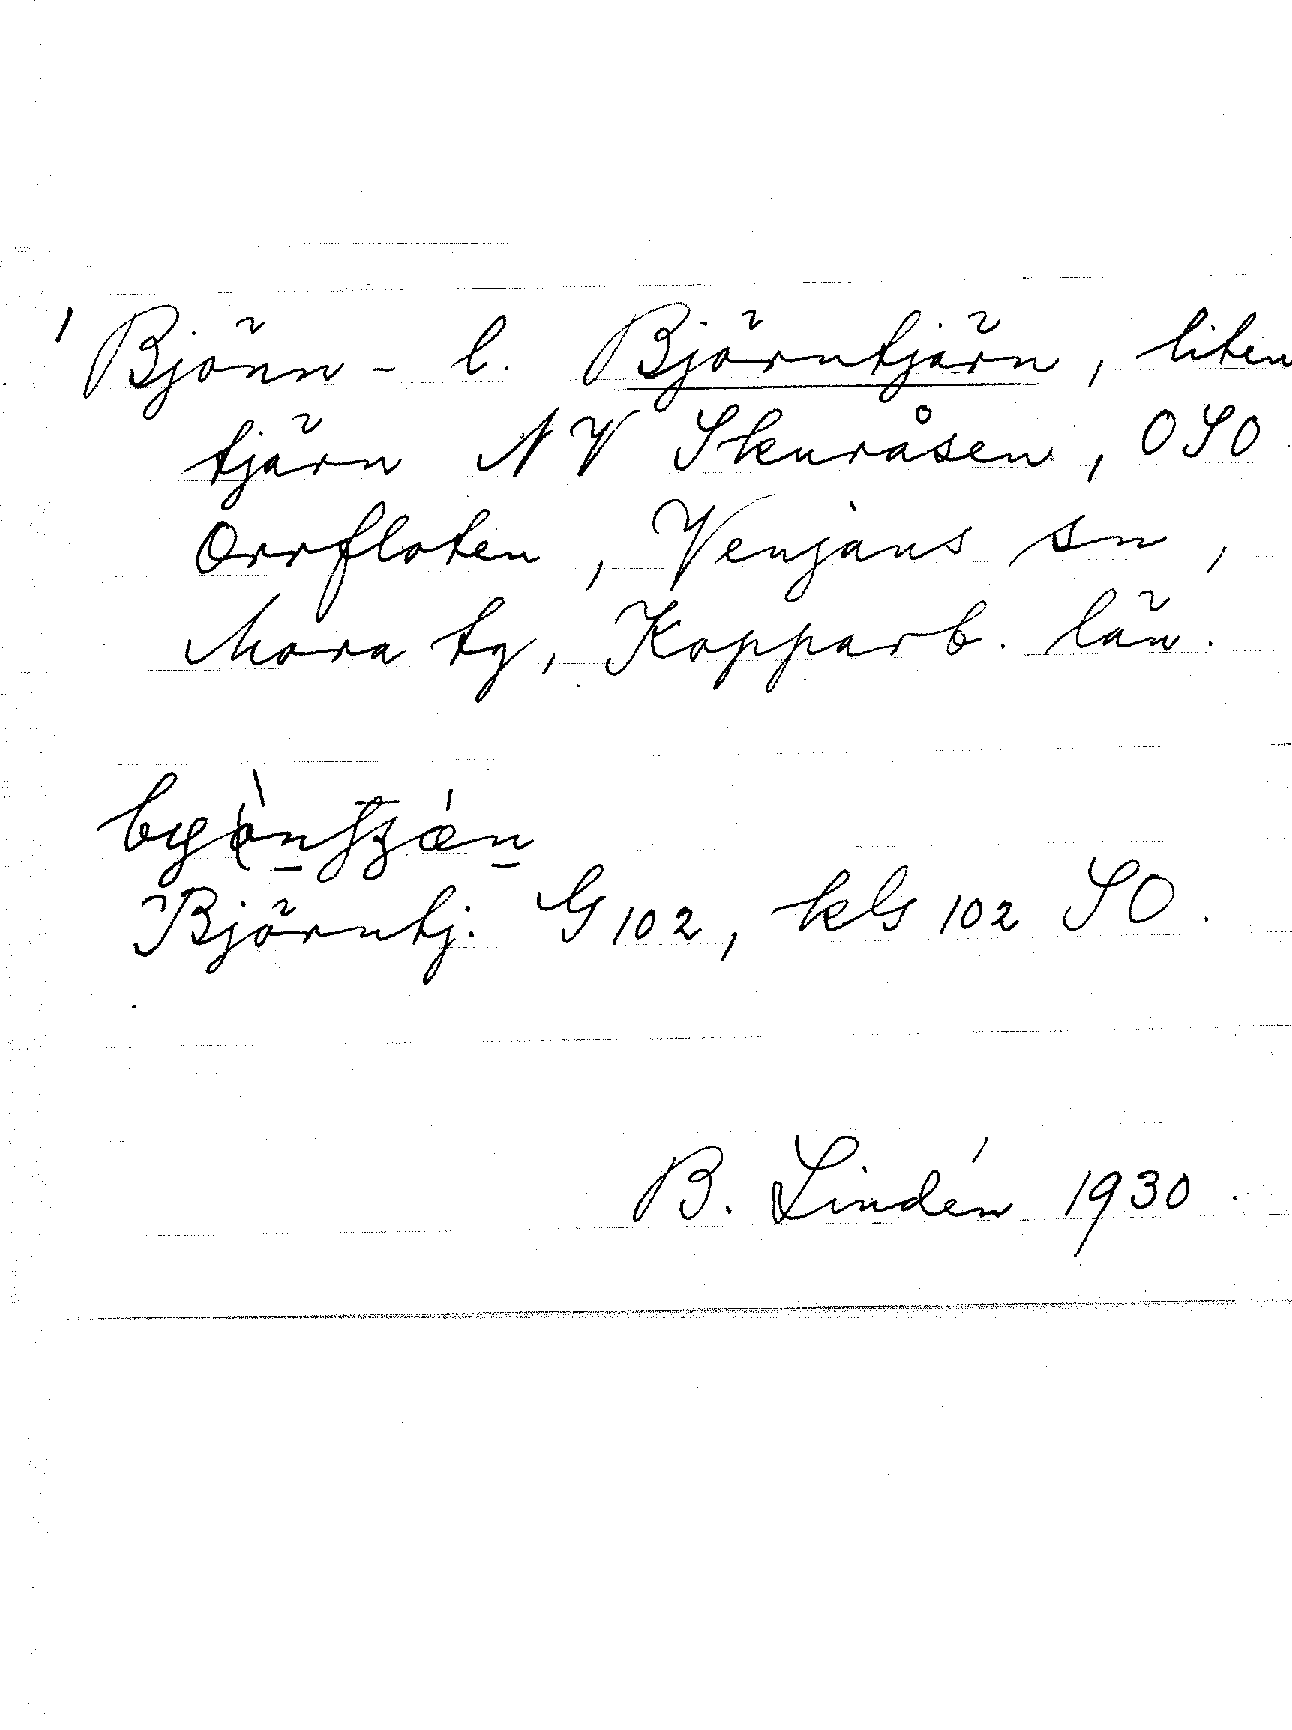 ' Björn- l. Björntjärn, liten
tjärn NV Skuråsen, OSO
Orrfloten, Venjans sn,
Mora tg, Kopparb. län.
Björntj. G 102, kG 102 SO.
B. Lindén 1930